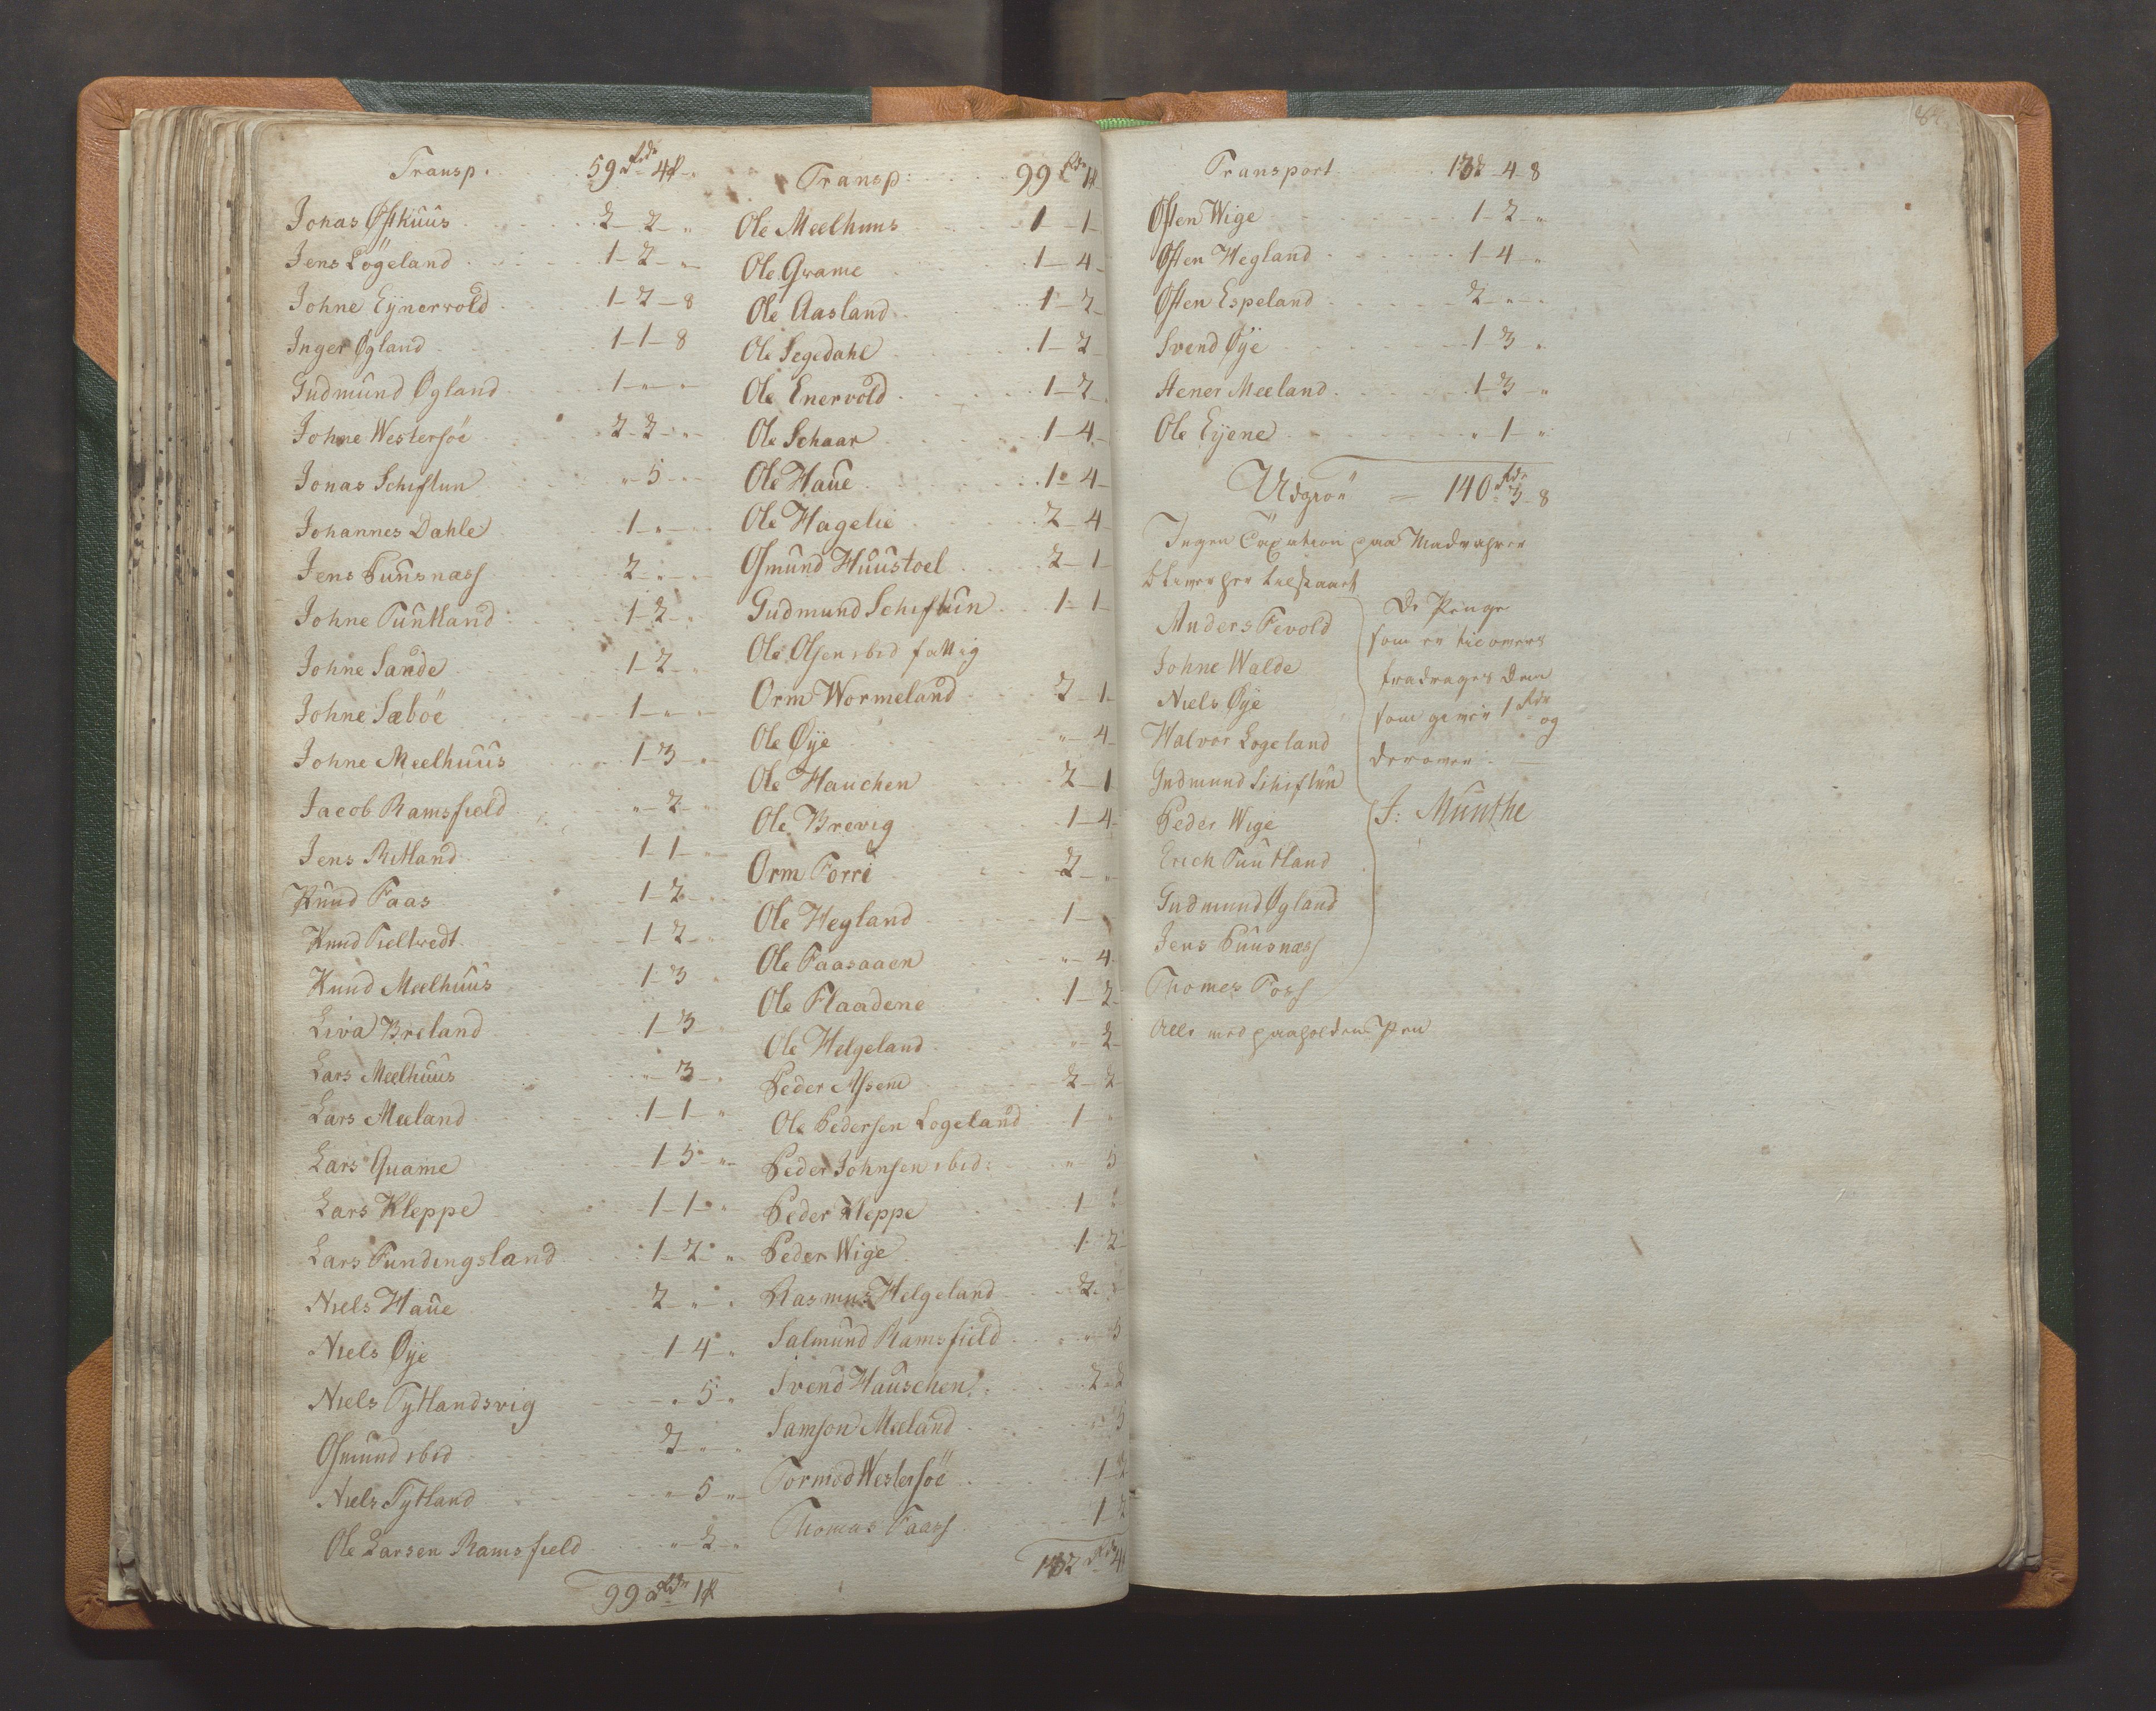 Transp. 59 Rdr 4
Jonas Østhuus 2 - 2 - "
Jens Løgeland 1 - 2 - "
Johne Eÿnervold 1 - 2 - 8
Inger Øgland 1 - 1 - 8
Gudmund Øgland 1 - " - "
Johne Westersöe 2 - 2 - "
Jonas Schiftun " - 5 - "
Johannes Dahle 1 - " - "
Jens Puusnæss 2 - " - "
Johne Tuntland 1 - 2 - "
Johne Sande 1 - 2 - "
Johne Sæböe 1 - " - "
Johne Meelhuus 1 - 3 - "
Jacob Ramsfield " - 2 - "
Jens Ritland 1 - 1 - "
Knud Faas 1 - 2 - "
Knud Tieltvedt 1 - 2 - "
Knud Meelhuus 1 - 3 "
Liva Breland 1 - 3 "
Lars Meelhuus " - 3 - "
Lars Meeland 1 - 1 - "
Lars Quame 1 - 5 - "
Lars Kleppe 1 - 1 - "
Lars Fundingsland 1 - 2 - "
Niels Haue 2 - " - "
Niels Øÿe 1 - 4 - "
Niels Tytlandsvig " - 5 - "
Osmund ibid 2 - " - "
Niels Tytland " - 5 - "
Ole Larsen Ramsfield " - 2 - "
99 Rdr 1
Transp: 99 Rdr 1
Ole Meelhuus 1 - 1 -
Ole Grame 1 - 4 -
Ole Aasland 1 - 2 -
Ole Segedahl 1 - 2 -
Ole Enervold 1 - 2 -
Ole Schaar 1 - 4 -
Ole Haue 1 - 4 -
Ole Hagelie 2 - 4 -
Osmund Huustoel 2 - 1 -
Gudmund Schiftun 1 - 1 -
Ole Olsen ibid fattig
Orm Wormeland 2 - 1 -
Ole Øÿe " - 4 -
Ole Hauchen 2 - 1
Ole Brevig 1 - 4 -
Orm Forre 2 - "
Ole Hegland 1 -
Ole Faasaaen " - 4
Ole Flaadene 1 - 2 -
Ole Helgeland " - 2 -
Peder Assem 2 - 2 -
Ole Pedersen Logeland 1 "
Peder Johnsen ibid: " 5
Peder Kleppe 1
Peder Wige 1 2
Rasmus Helgeland 2 -
Salmund Ramsfield " - 5
Svend Hauschen 2 - 2
Samson Meeland " 5
Tormod Westersöe 1 - 2
Thomas Faass 1 - 2
132 Rdr 4
84
Transport 132 - 4 - 8
Østen Wige 1 - 2 - "
Østen Hegland 1 - 4 - "
Østen Espeland 2 - " - "
Svend Øÿe 1 - 3 - "
Stener Meeland 1 - 3 - "
Ole Eÿene " - 1 - "
Udgiör = 140 Rdr 3 - 8
Ingen Taxation paa Madvahrer
bliver her tilstaaet
Anders Fevold
Johne Walde
Niels Øÿe
Halvor Logeland
Gudmund Schiftun
Peder Wige
Erich Tuntland
Gudmund Øgland
Jens Puusnæss
Thomes Foss
Alle med paaholden Pen
De Penge
som er tilovers
fradrages dem
som giver 1 Rdr og
derover.
J: Munthe